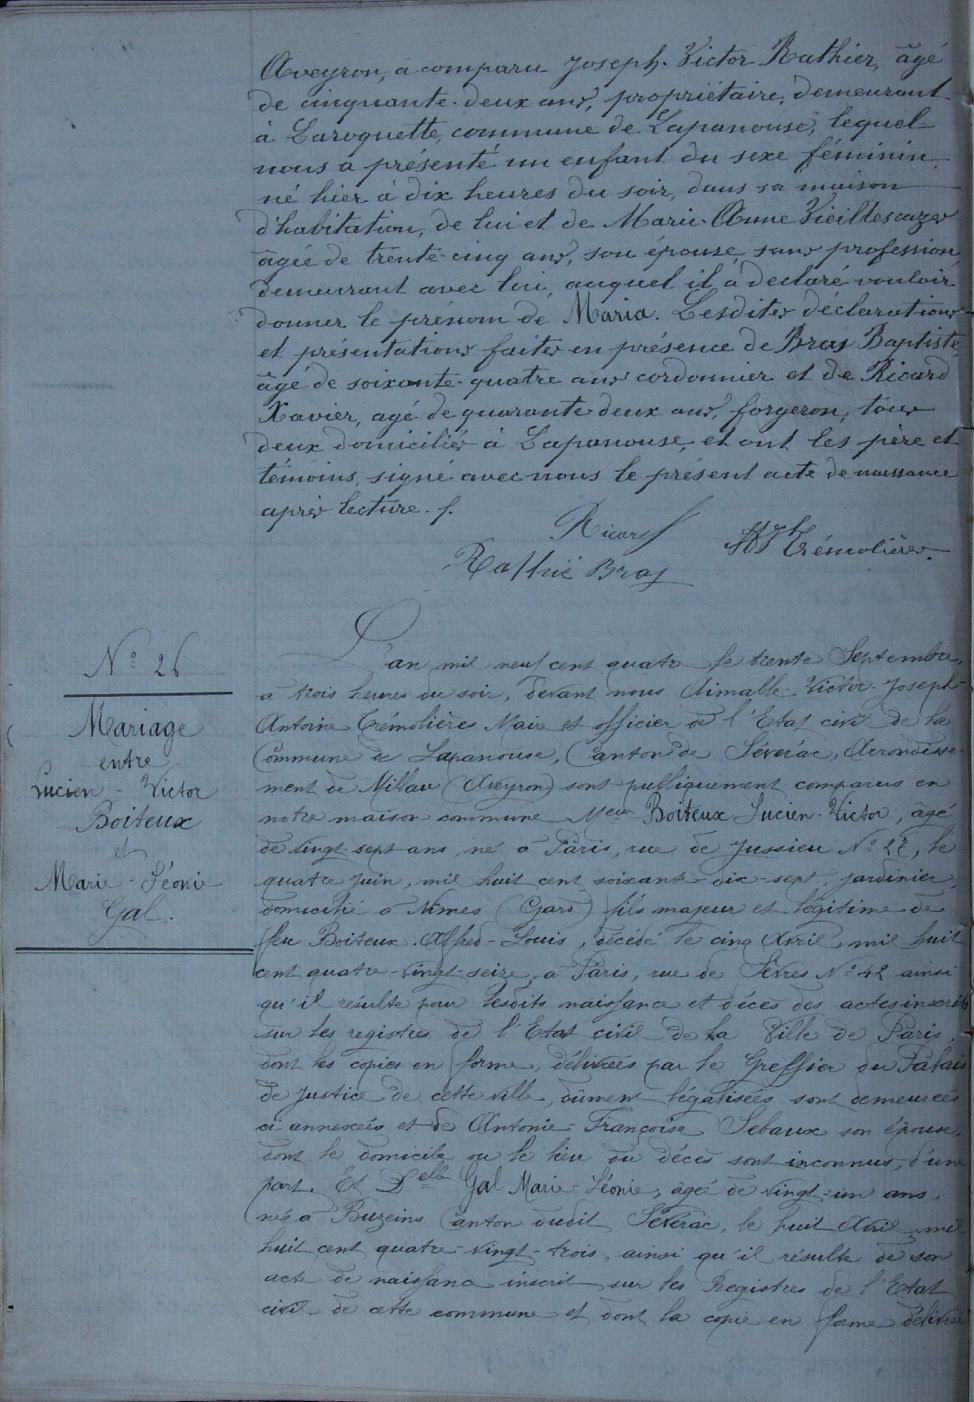 Aveyron, à comparu Joseph-Victor Rathier, âgé
de cinquante-deux ans, propriétaire, demeurant
à Laroquette, commune de Lapanouse, lequel
nous a présenté un enfant du sexe féminin
né hier à dix heures du soir, dans sa maison
d'habitation, de lui et de Marie-Anne Vieillescazes
âgée de trente-cinq ans, son épouse, sans profession,
demeurant avec lui, auquel il à declaré vouloir
donner le prénom de Maria. Lesdites déclarations
et présentations faites en présence de Bras Baptiste
âgé de soixante-quatre ans cordonnier et de Ricard
Xavier, agé de quarante deux ans, forgeron, tous
deux domiciliés à Lapanouse, et ont les père et
témoins, signé avec nous le présent acte de naissance
après lecture.
Ricard
Trémolières
Rathié Bras
N° 26
Mariage
entre
Lucien-Victor
Boiteux
et
Marie-Léonie
Gal.
L'an mil neuf cent quatre le trente Septembre,
a trois heures du soir, devant nous Aimable-Victor-Joseph-
Antoine Trémolières Maire et officier de l'Etat civil de la
Commune de Lapanouse, Canton de Sévérac, Arrondisse-
ment de Millau (Aveyron) sont publiquement comparus en
notre maison commune Boiteux Lucien-Victor, âgé
de vingt-sept ans, né à Paris, rue de Jussieu N° le
quatre Juin, mil huit cent soixante-dix-sept, jardinier,
domicilié à Nîmes (Gard) fils majeur et légitime de
feu Boiteux Alfred-Louis, décédé le cinq Avril, mil huit
cent quatre-vingt-seize, à Paris, rue de Sèvres N° 42 ainsi
qu'il résulte pour lesdits naissance et décès des actes inscrits
sur les registres de l'Etat civil de la Ville de Paris,
dont les copies en forme, délivrées par le Greffier du Palais
de Justice de cette ville, dûment légalisées sont demeurées
ci-annexées et de Antonie-Françoise Sebaux son épouse,
dont le domicile ou le lieu du décès sont inconnus, d'une
part. Et Delle Gal Marie-Léonie, âgée de vingt-un ans,
née à Buzeins Canton dudit Sévérac, le huit Avril mil
huit cent quatre-vingt-trois, ainsi qu'il résulte de son
acte de naissance inscrit sur les Registres de l'Etat
civil de cette commune et dont la copie en forme délivrée